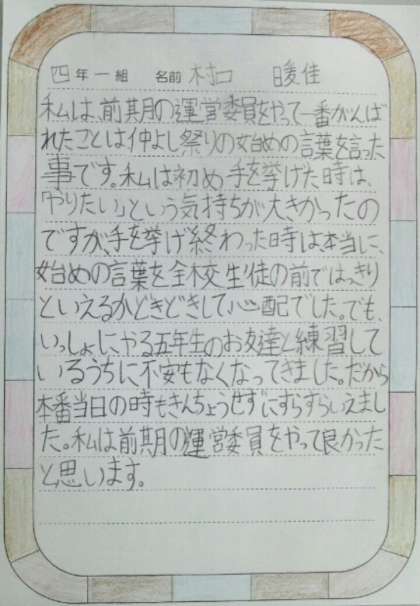 四年一組 名前 村口 暖佳
私は、前期の運営委員をやって一番がんば
れたことは仲よし祭りの始めの言葉を言った
事です。私は初め手を挙げた時は、
「やりたい」という気持ちが大きかったの
ですが、手を挙げ終わった時は本当に、
始めの言葉を全校生徒の前ではっきり
といえるかどきどきして心配でした。でも、
いっしょにやる五年生のお友達と練習して
いるうちに不安もなくなってきました。だから
本番当日の時もきんちょうせずにすらすらいえまし
た。私は前期の運営委員をやって良かった
と思います。